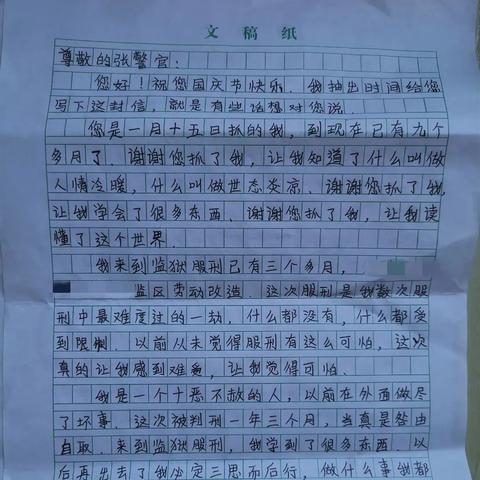 文稿纸
尊敬的张警官：
您好！祝您国庆节快乐。我抽出时间给您
写下这封信，就是有些话想对您说。
您是一月十五日抓的我，到现在已有九个
多月了、谢谢您抓了我，让我知道了什么叫做
人情冷暖，什么叫做世态炎凉、谢谢您抓了我，
让我学会了很多东西、谢谢您抓了我，让我读
懂了这个世界．
我来到监狱服刑已有三个多月，
监区劳动改造．这次服刑是我数次服
刑中最难度过的一劫，什么都没有，什么都受
到限制．以前从未觉得服刑有这么可怕，这次
真的让我感到难受，让我觉得可怕．
我是一个十恶不赦的人，以前在外面做尽
了坏事．这次被判刑一年三个月，当真是咎由
自取．来到监狱服刑，我学到了很多东西．以
后再出去了我必定三思而后行，做什么事我都